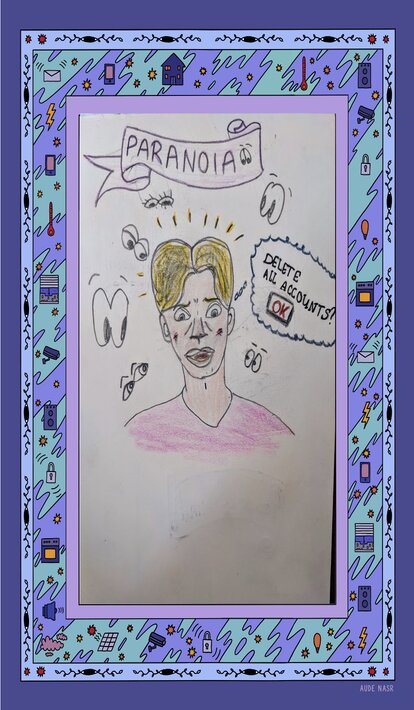 PARANOIA
DELETE
ALL ACCOUNTS?
OK
AUDE NASR